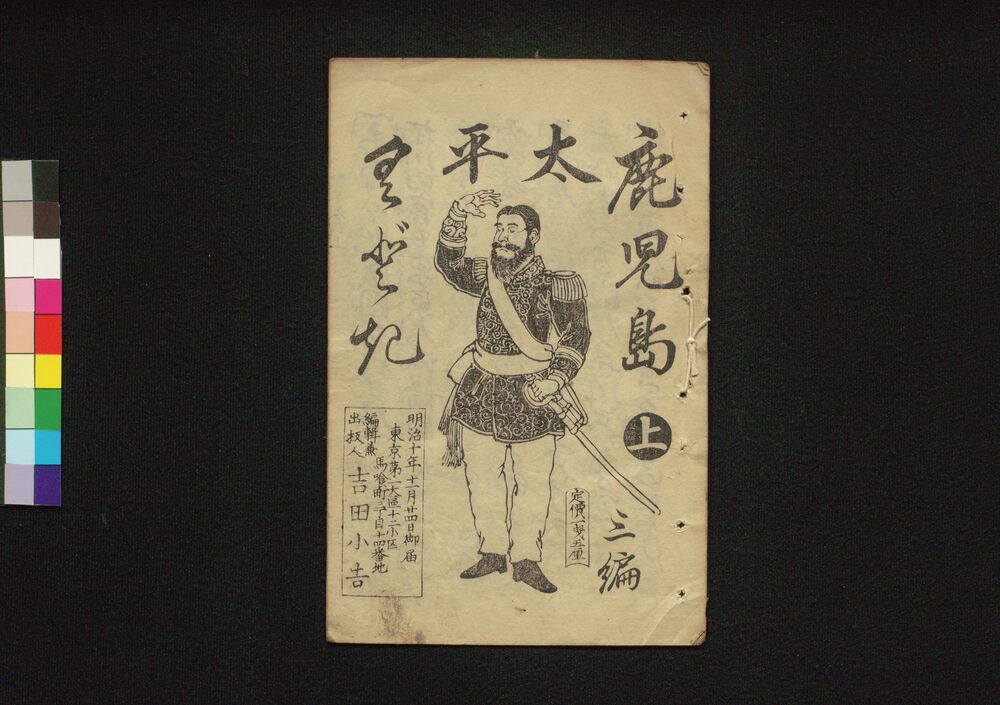 鹿児島
太平
記
上
三編
定價
明治十年十一月廿四日御届
東京第一大區十二小区
馬喰町三丁目十四番地
編輯兼
出板人
吉田小吉